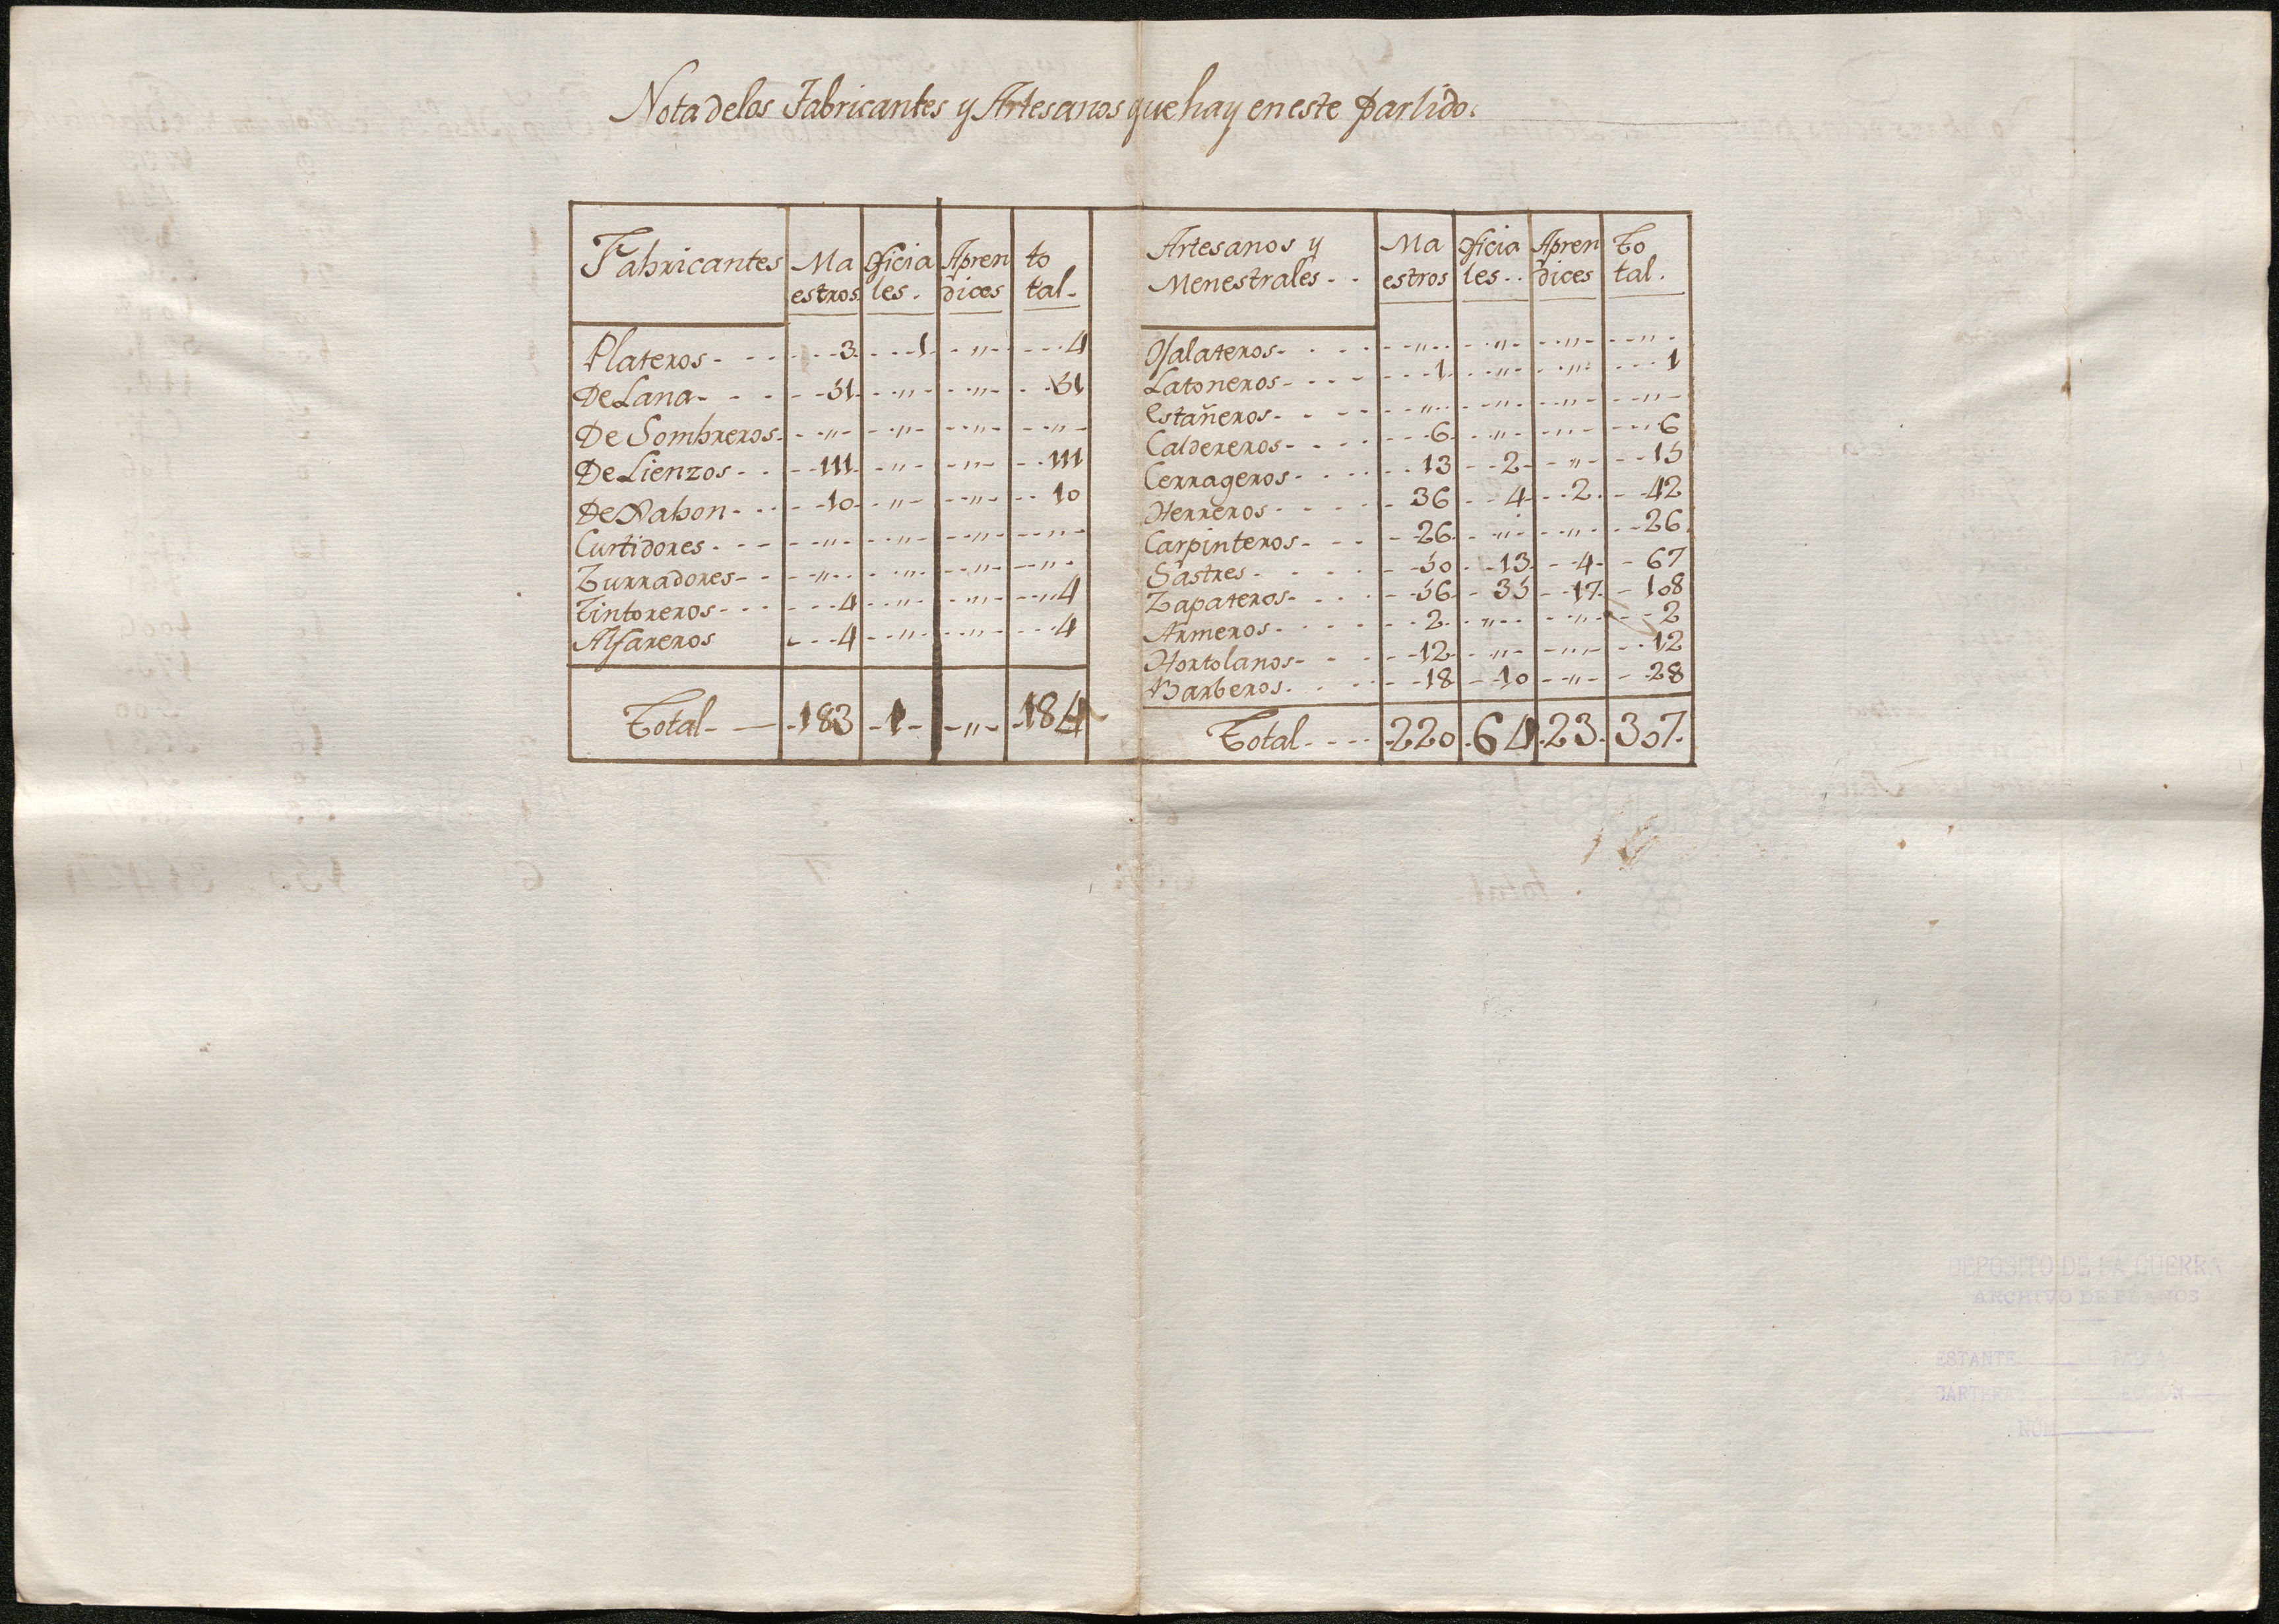 Nota delos Fabricantes y Artesanos que hay en este Partido.
Fabricantes Ma estros Oficia les. Apren dices to tal.
Plateros 3 1 " 4
De Lana 51 " " 51
De Sombreros " " " "
De Lienzos 111 " " 111
De Xabon 10 " " 10
Curtidores " " " "
Zurradores " " " "
Tintoreros 4 " " 4
Alfareros 4 " " 4
Total 183 1 " 184
Artesanos y Menestrales Ma estros Oficia les Apren dices To tal.
Ojalateros " " " "
Latoneros 1 " " 1
Estañeros " " " "
Caldereros 6 " " 6
Cerrageros 13 2 " 15
Herreros 36 4 2 42
Carpinteros 26 " " 26
Sastres 50 13 4 67
Zapateros 56 35 17 108
Armeros 2 " " 2
Hortolanos 12 " " 12
Barberos 18 10 " 28
Total 220 64 23 307
DEPOSITO DE LA GUERRA
ARCHIVO DE PLANOS
ESTANTE
CARTERA SECCION
NUM